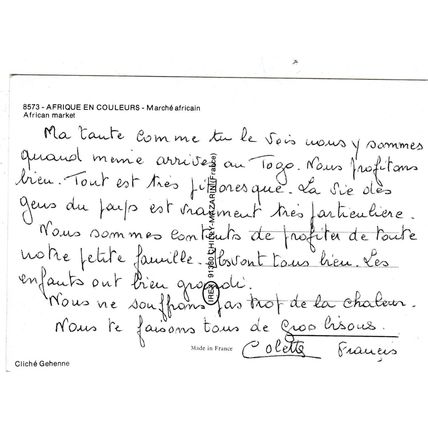 8573 - AFRIQUE EN COULEURS - Marché africain
African market
Ma tante comme tu le vois nous y sommes
quand meme arrivés au Togo. Nous profitons
bien. Tout est très pittoresque. La vie des
gens du pays est vraiment très particulière.
Nous sommes contents de profiter de toute
notre petite famille. Ils vont tous bien. Les
enfants ont bien grandi.
Nous ne souffrons pas trop de la chaleur.
Nous te faisons tous de gros bisous.
Colette Francis
Made in France
Cliché Gehenne
(IREX) 91380 CHILLY-MAZARIN (France)